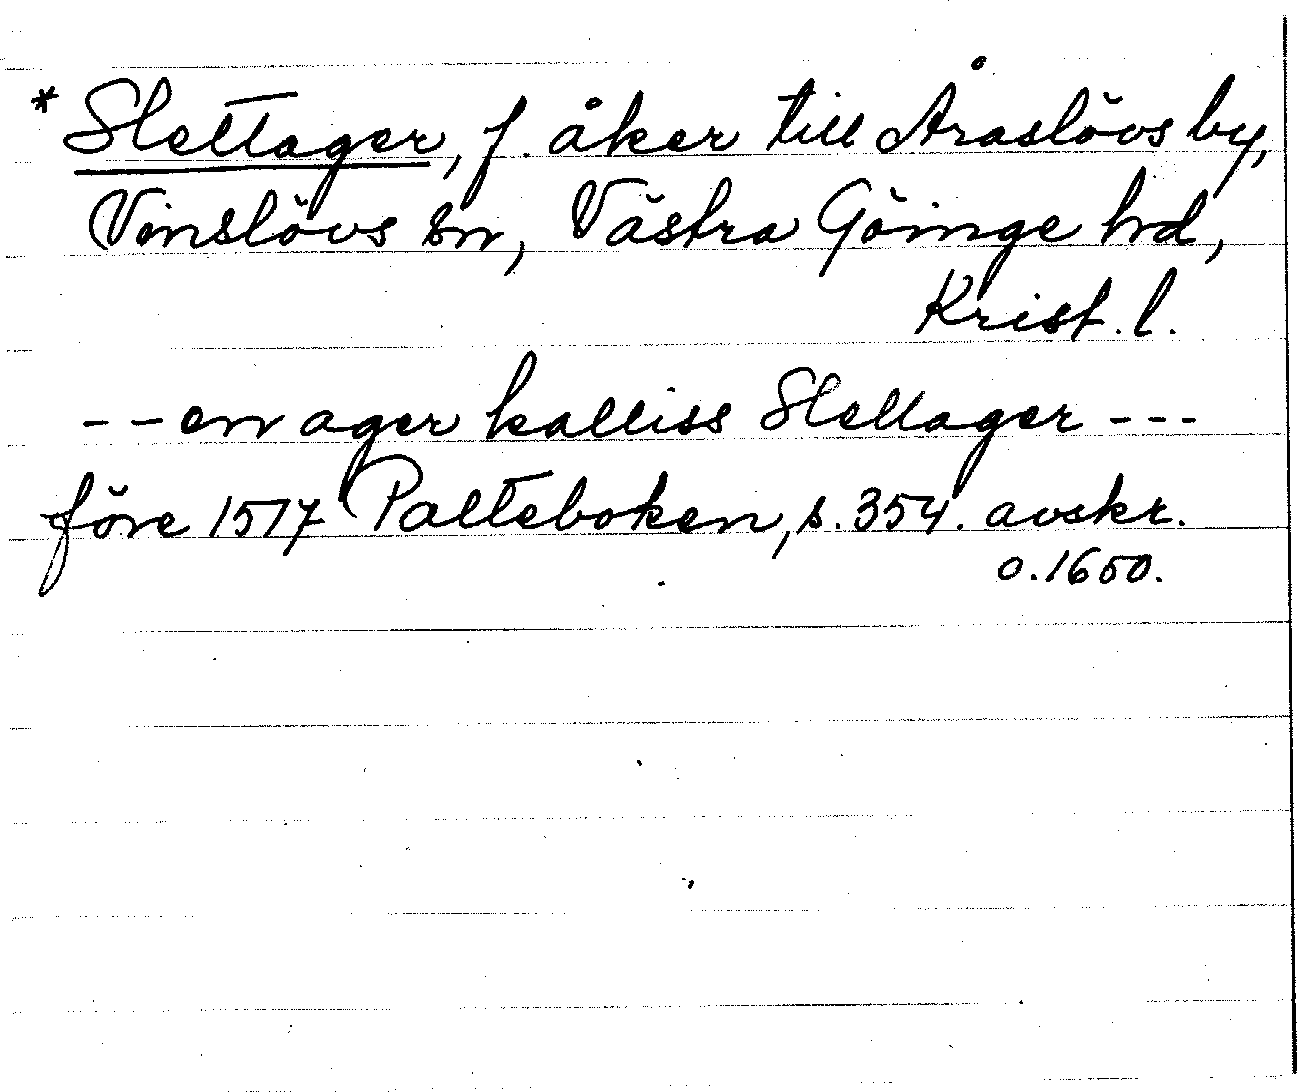 * Slettager, f. åker till Åraslövs by,
Vinslövs sn, Västra Göinge hd,
Krist. l.
- - en ager kalliss Slettager - - -
före 1517 Palteboken, s. 354. avskr.
o. 1650.